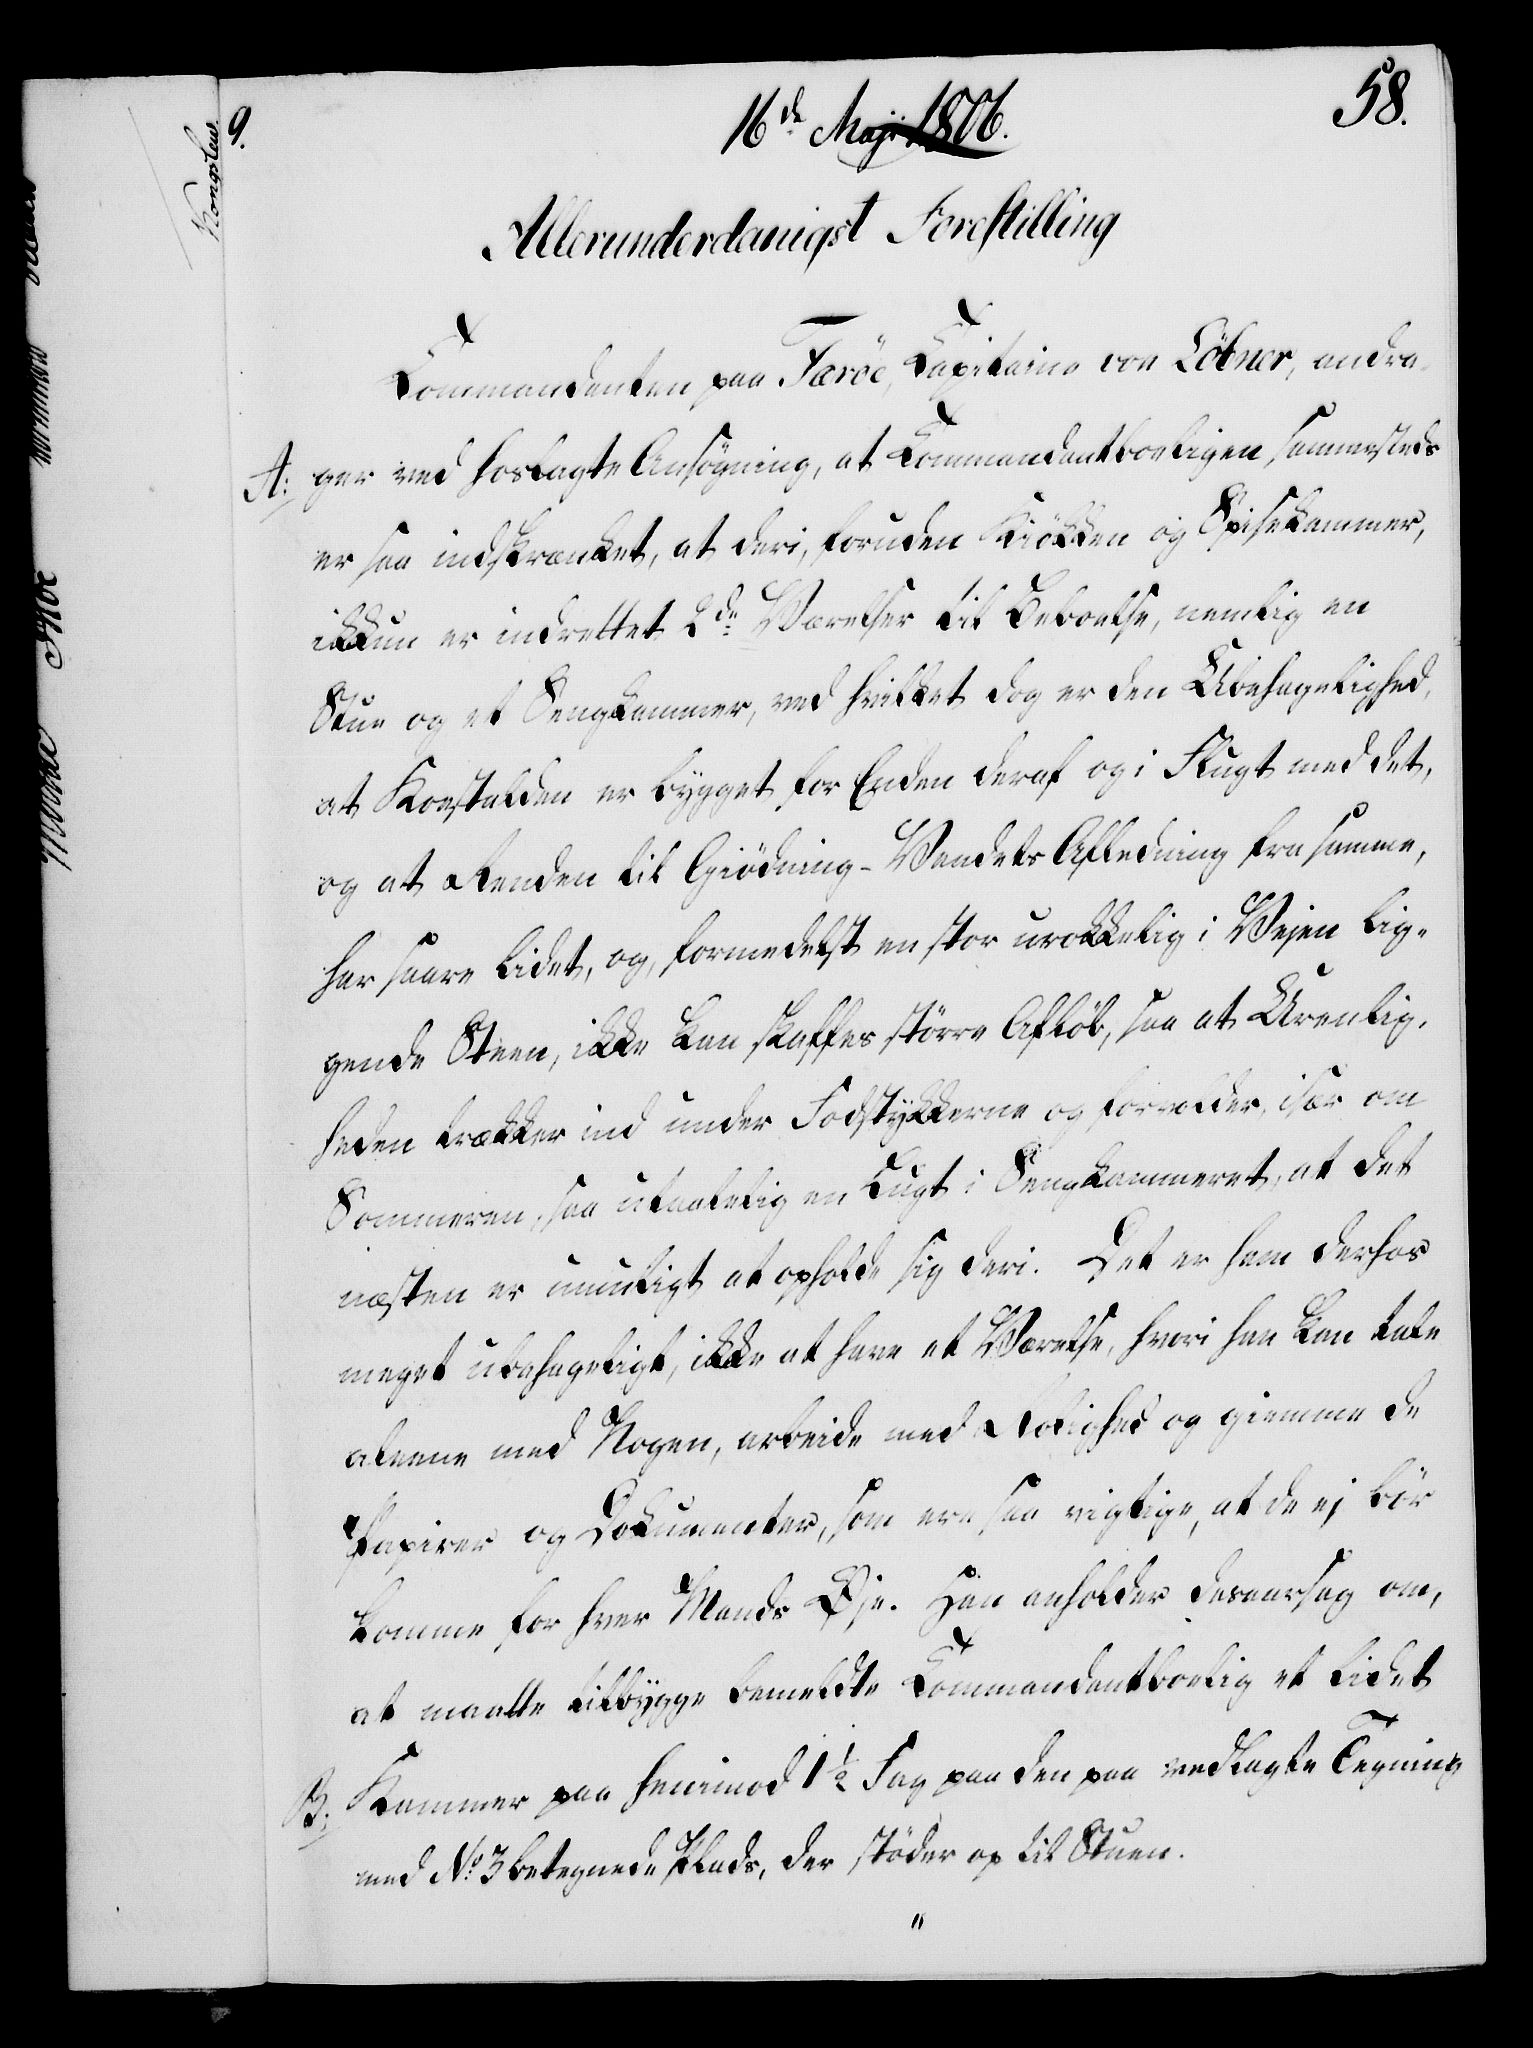 9.
16de Maji 1806.
58.
Kongslew.
Allerunderdanigst Forestilling
Kommandanten paa Færöe, Capitaine von Löbner, andra-
A: ger ved hoslagte Ansögning, at Kommandantboeligen sammesteds
er saa indskrænket, at deri, foruden Kiökken og Spisekammer,
ikkun er indrettet 2de Værelser til Beboelse, nemlig en
Stue og et Sengkammer, ved hvilket dog er den Ubehagelighed,
at Koestalden er bygget for Enden deraf og i Flugt med det,
og at Renden til Giödning-Vandets Afledning fra samme,
har saare lidet, og, formedelst en stor urokkelig i Vejen lig-
gende Steen, ikke kan skaffes större Aflöb, saa at Ureenlig-
heden trækker ind under Fodstykkerne og forvolder, især om
Sommeren, saa utaalelig en Lugt i Sengkammeret, at det
næsten er umuligt at opholde sig deri. Det er ham derhos
meget ubehageligt, ikke at have et Værelse, hvori han kan tale
aleene med Nogen, arbeide med Rolighed og giemme de
Papirer og Dokumenter, som ere saa vigtige, at de ej bör
komme for hver Mands Øje. Han anholder desaarsag om,
at maatte tilbygge bemeldte Kommandantboelig et lidet
B: Kammer paa henimod 1½ Fag paa den paa vedlagte Tegning
med No 3 betegnede Plads, der stöder op til Stuen.
"